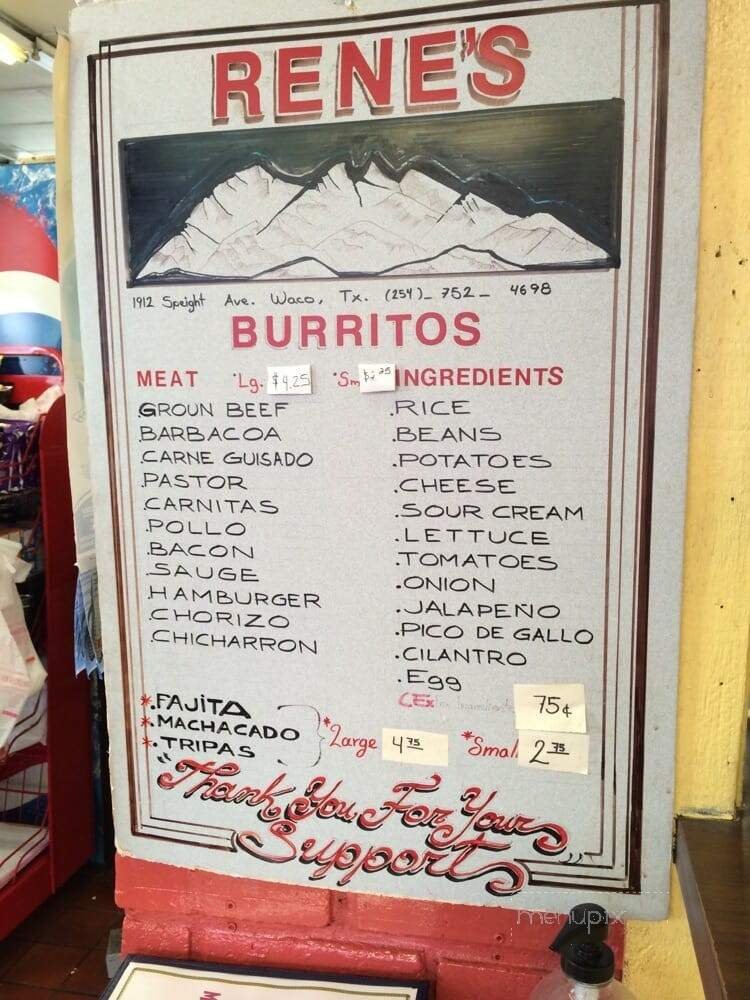 RENE'S
1912 Speight Ave. Waco, Tx. (254)_ 752_ 4698
BURRITOS
MEAT *Lg. $4.25 *Sm INGREDIENTS
.GROUN BEEF
.BARBACOA
.CARNE GUISADO
.PASTOR
.CARNITAS
.POLLO
.BACON
.SAUGE
.HAMBURGER
.CHORIZO
.CHICHARRON
.RICE
.BEANS
.POTATOES
.CHEESE
.SOUR CREAM
.LETTUCE
.TOMATOES
.ONION
.JALAPEÑO
.PICO DE GALLO
.CILANTRO
.Egg
75¢
*.FAJITA
*.MACHACADO
*.TRIPAS
*Large 4 75
*Small 2 75
"Thank You For Your
Support"
menupix